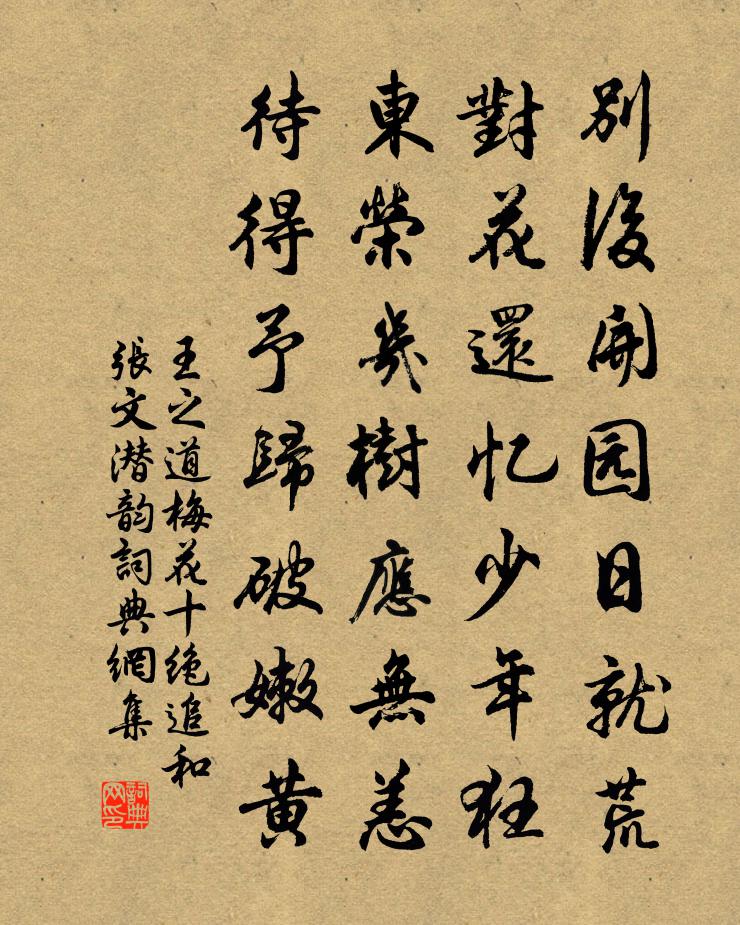 別後開园日就荒
對花還忆少年狂
東榮幾樹應無恙
待得予歸破嫩黄
王之道梅花十绝追和
張文潜韵詞典網集
詞典网印